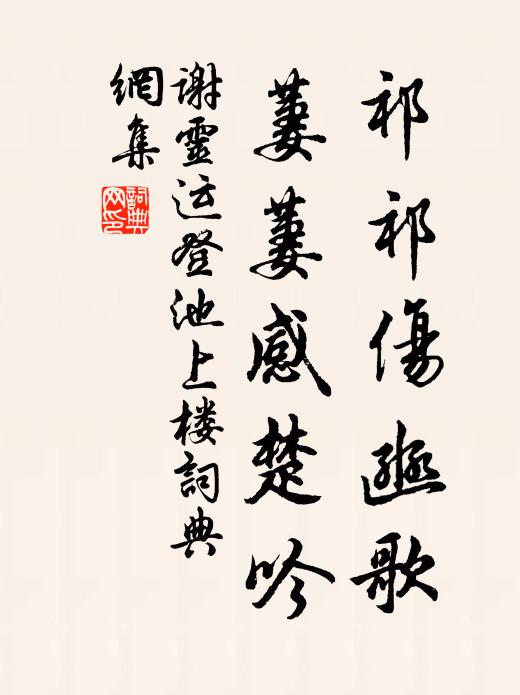 祁祁傷豳歌
萋萋感楚吟
謝靈运登池上楼詞典
網集
詞典
网印